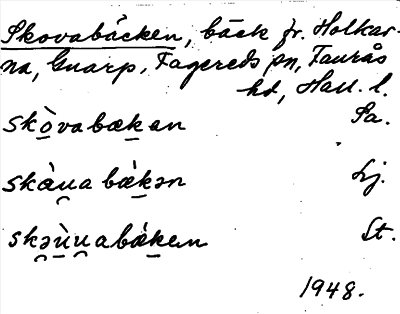 Skovabäcken, bäck fr. Holkar-
na, Gnarp, Fagereds sn, Faurås
hd, Hall. l.
skòvabæken Sa.
skàu̯a bækən Lj.
skəu̯ùu̯abæken St.
1948.